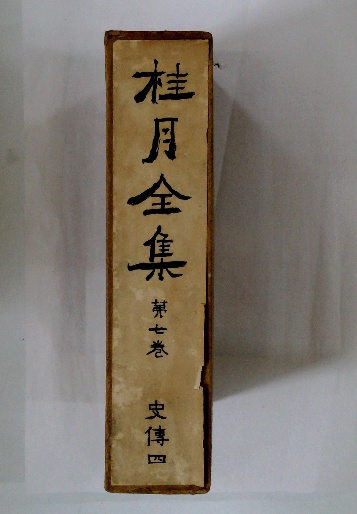 桂月全集
第七巻
史傳四